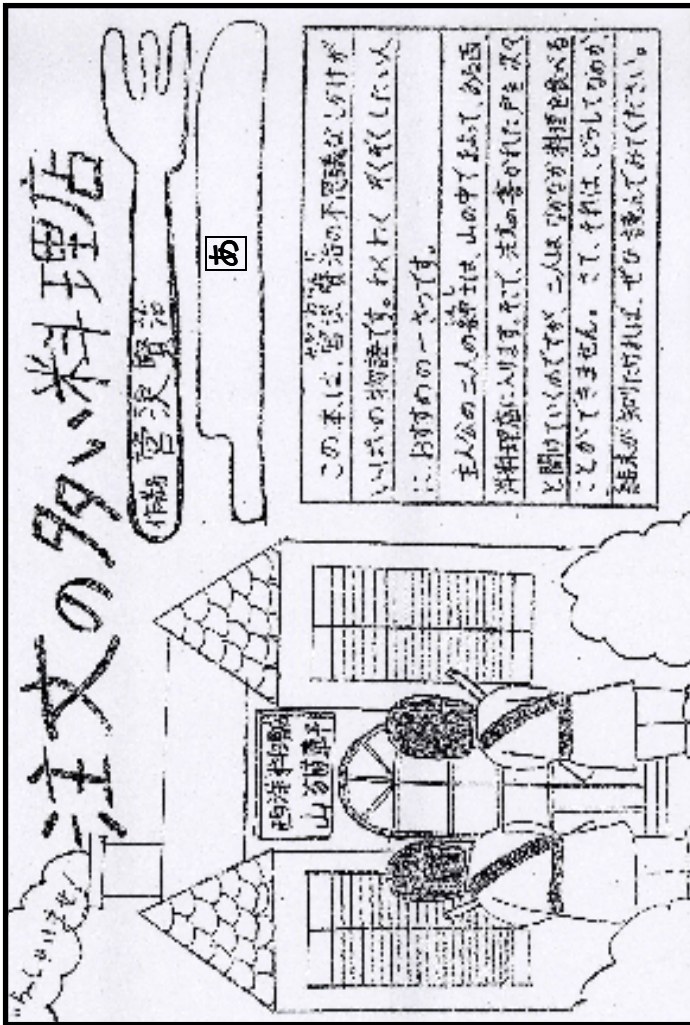 注文の多い料理店
作者 宮沢賢治
あ
この本は、宮沢賢治の不思議なしかけが
いっぱいの物語です。わくわく ぞくぞくしたい人
に、おすすめの一さつです。
主人公の二人の紳士は、山の中でまよって、ある西
洋料理店に入ります。そして、注文の書かれた戸を次々
と開けていくのですが、二人はなかなか料理を食べる
ことができません。さて、それは、どうしてなのか
結末が知りたければ、ぜひ読んでみてください。
西洋料理店
山猫軒